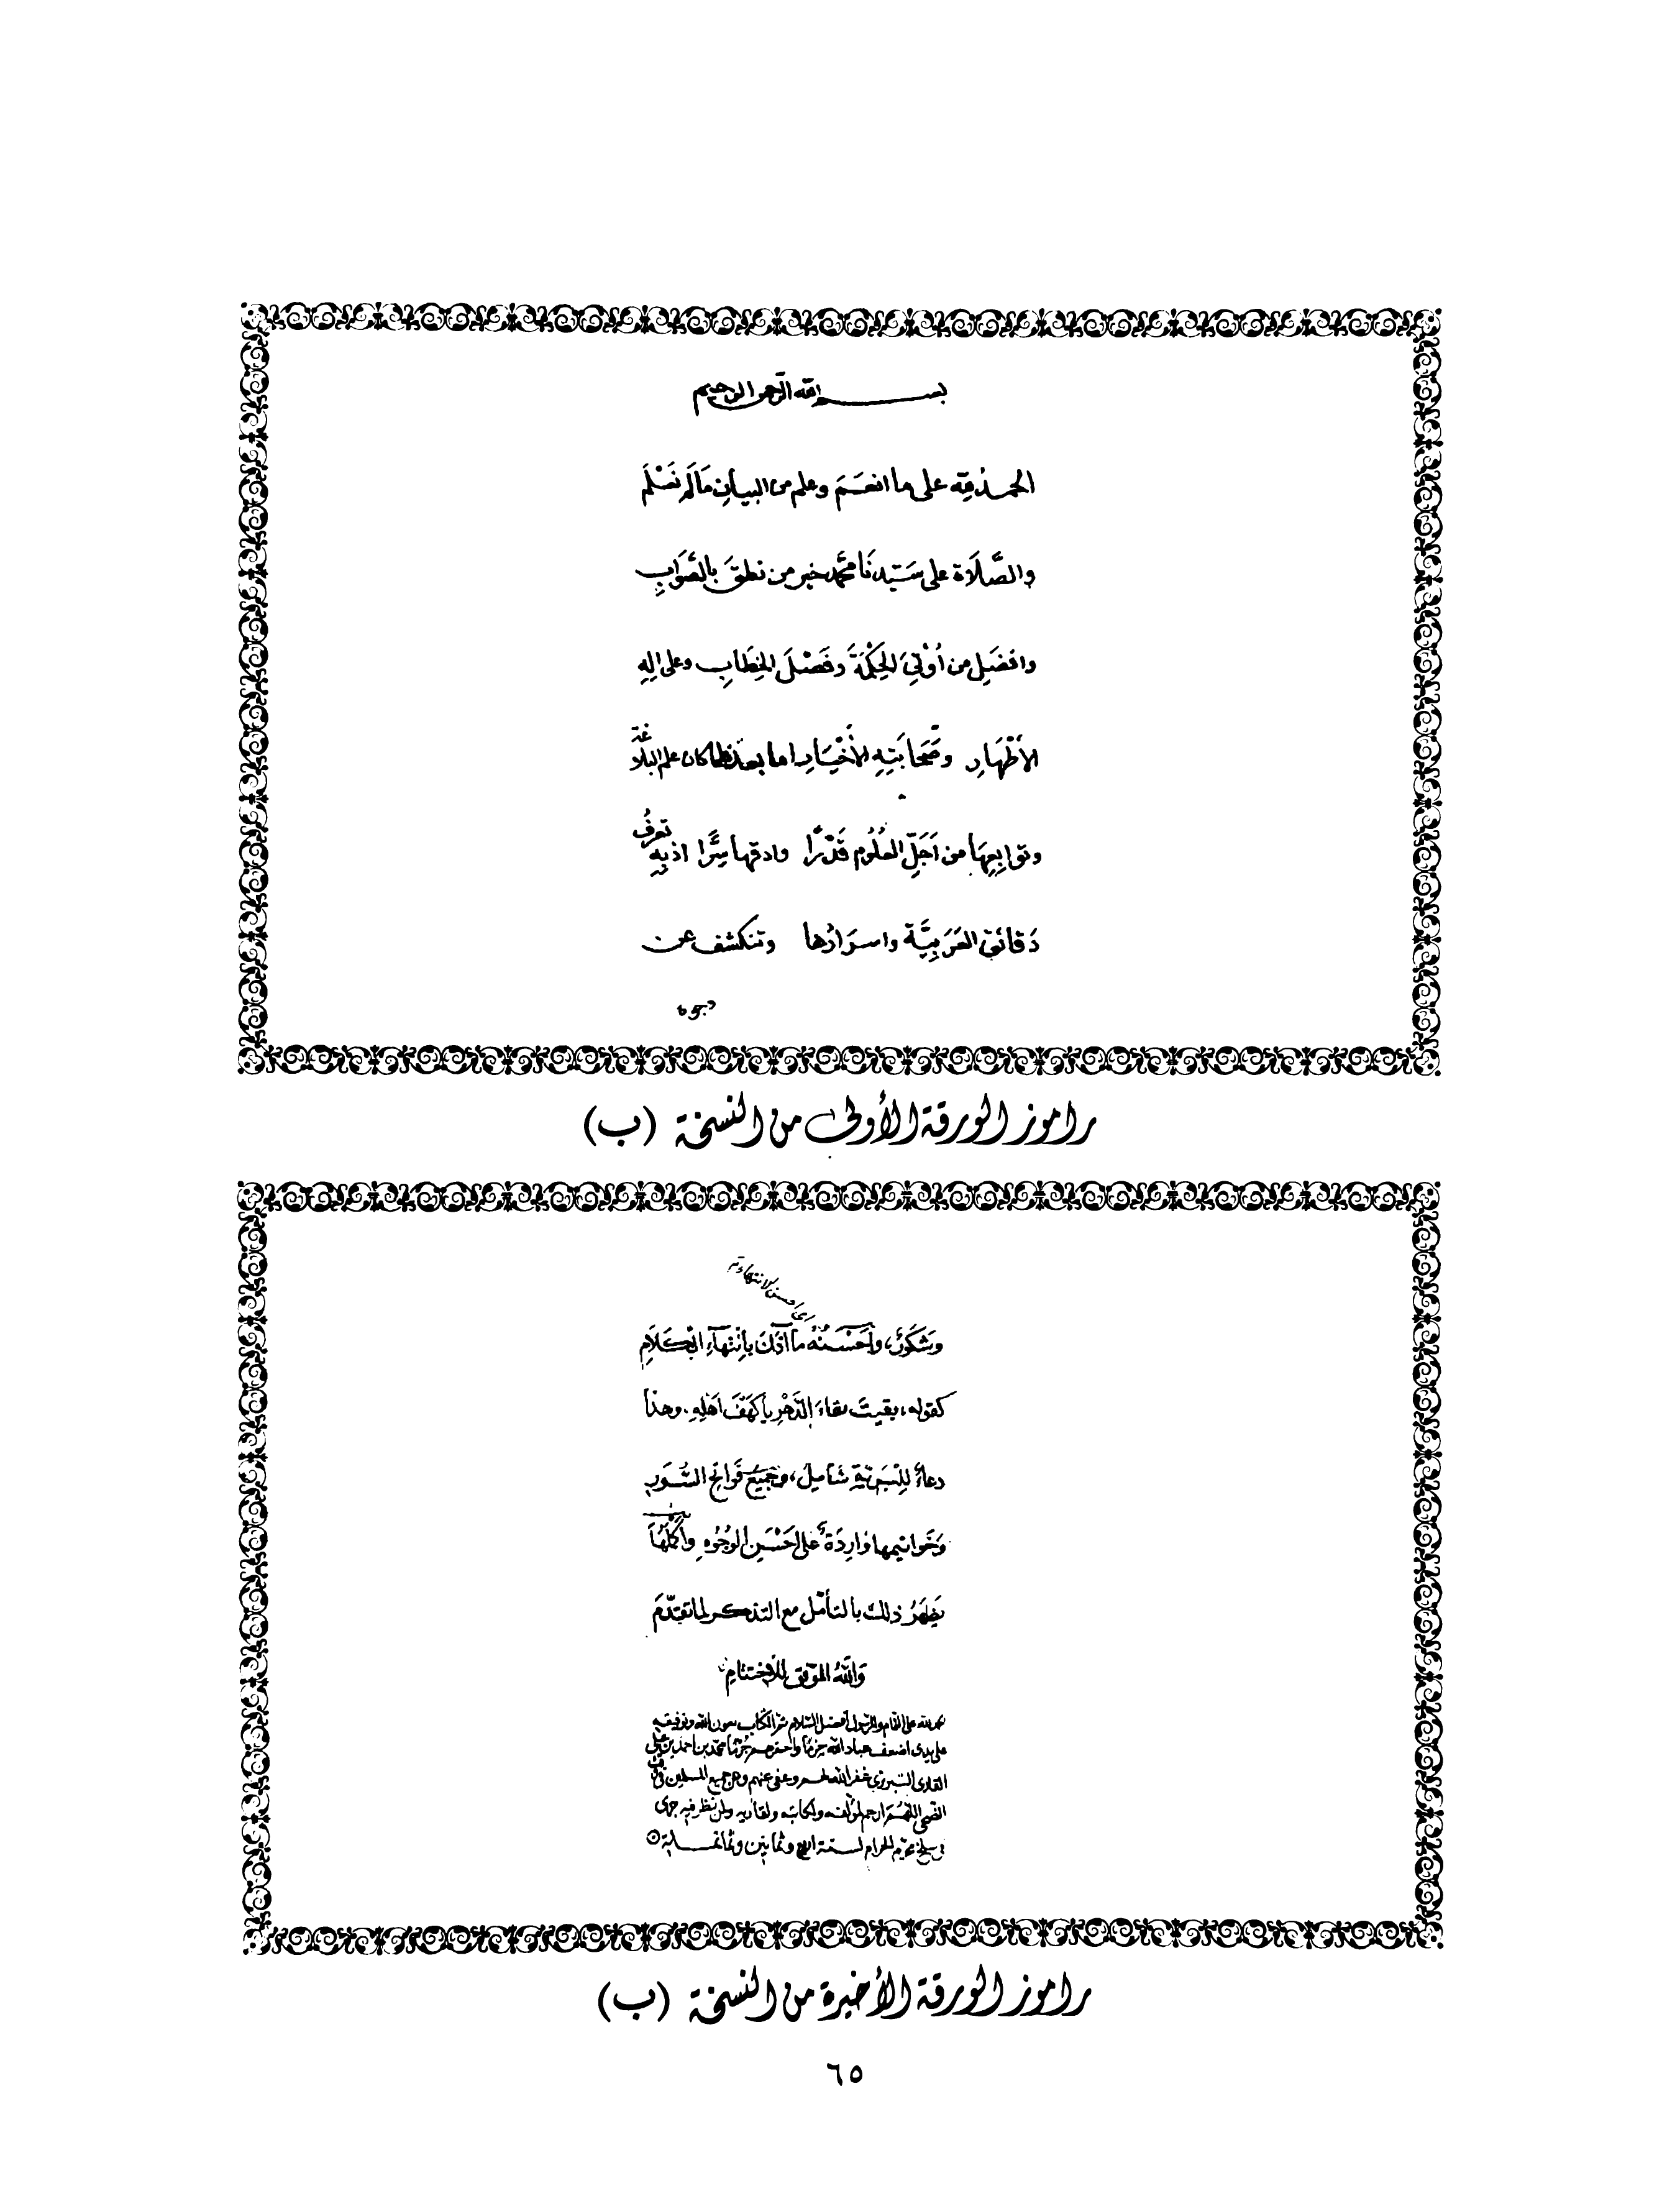 بسم الله الرحمن الرحيم
الحمد لله على ما انعَمَ وعلم من البيان مَا لَم نَعْلَم
والصَّلاَة على سَيّدنَا محمَّد خير من نطقَ بالصَّوَابِ
وافضَلِ من أُوْتِيَ الحِكْمَةَ وفَصْلَ الخِطَابِ وعلى الِهِ
الأَطْهَارِ وصَحَابَتِهِ الأَخْيَارِ اما بعد فلما كان علم البلاغة
وتوابِعِهَا من اَجَلِّ العُلُوم قَدْرًا وادقها سِرًّا اذ بِهِ تعرفُ
دَقائق العَرَبِيَّة واسرَارُها وتنكشف عن
وجوه
راموز الورقة الأولى من النسخة (ب)
وَشكوَى، واَحْسَنُهُ ما آذَنَ بِانْتِهَآءِ الكَلاَمِ
كقوله، بقيتَ بقاءَ الدَّهْرِ يا كَهْفَ اَهْلِهِ، وهذا
دعاءٌ لِلْبَرِيَّةِ شَامِلُ، وجَمِيْعُ فَوَاتِحِ السُّوَرِ
وَخَواتيمها وَارِدَةٌ على اَحْسَنِ الوُجُوْهِ وأَكْمَلِهَا
يَظهَرُ ذلك بالتأمّل مع التذكر لما تقدّمَ
وَاللّهُ الموفق للاختتام
الحمد لله على التمام وللرسول أفضل السّلام تم الكتاب بعون الله وتوفيقه
على يدي اضعف عباد الله جِرْمًا واحقرهم جُرْمًا محمد بن احمد بن علي
القارى التبريزي غفر الله لهم وعفى عنهم وعن جميع المسلمين في وقت
الضحى اللّهُمَّ ارحم لمؤلفه ولكاتبه ولقاريه ولمن نظر فيه جرى
في سلخ محرم الحرام لسنة اربع وثمانين وثمانمائة
راموز الورقة الأخيرة من النسخة (ب)
٦٥